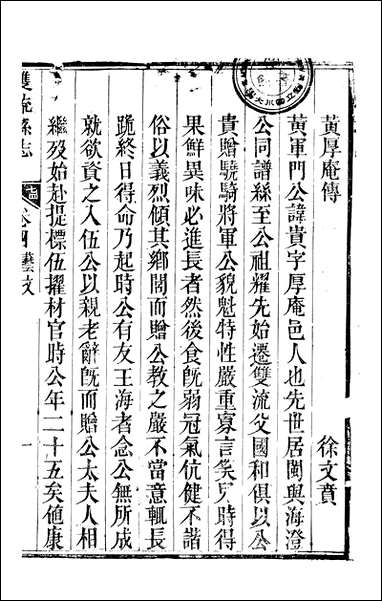 黃厚庵傳
徐文賁
黃軍門公諱貴字厚庵邑人也先世居閩與海澄
公同譜系至公祖耀先始遷雙流父國和俱以公
貴贈驍騎將軍公貌魁特性嚴重寡言笑兒時得
果鮮異味必進長者然後食旣弱冠氣伉健不諧
俗以義烈傾其鄉閭而贈公教之嚴不當意輒長
跪終日得命乃起時公有友王海者念公無所成
就欲資之入伍公以親老辭旣而贈公太夫人相
繼歿始赴提標伍擢材官時公年二十五矣値康
雙流縣志
卷四藝文
一